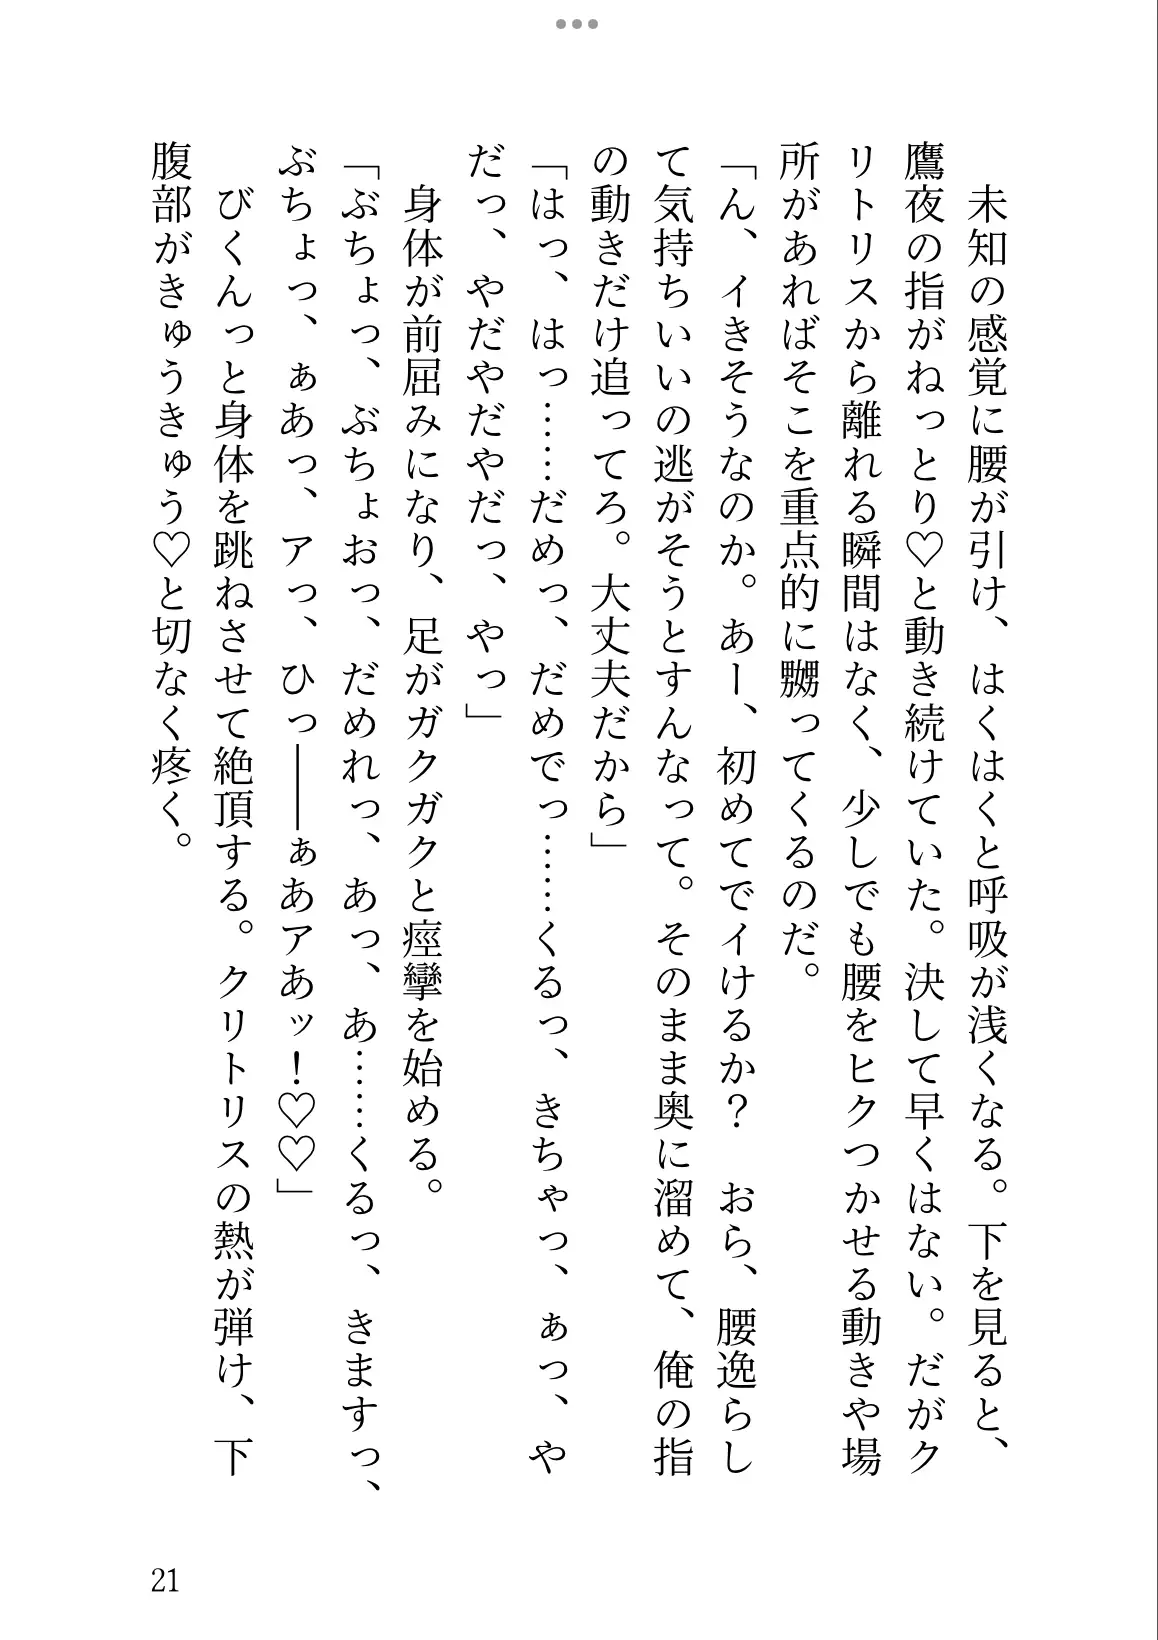 未知の感覚に腰が引け、はくはくと呼吸が浅くなる。下を見ると、
鷹夜の指がねっとり♡と動き続けていた。決して早くはない。だがク
リトリスから離れる瞬間はなく、少しでも腰をヒクつかせる動きや場
所があればそこを重点的に嬲ってくるのだ。
「ん、イきそうなのか。あー、初めてでイけるか？　おら、腰逸らし
て気持ちいいの逃がそうとすんなって。そのまま奥に溜めて、俺の指
の動きだけ追ってろ。大丈夫だから」
「はっ、はっ……だめっ、だめでっ……くるっ、きちゃっ、ぁっ、や
だっ、やだやだやだっ、やっ」
身体が前屈みになり、足がガクガクと痙攣を始める。
「ぶちょっ、ぶちょおっ、だめれっ、あっ、あ……くるっ、きますっ、
ぶちょっ、ぁあっ、アっ、ひっ――ぁあアあッ！♡♡」
びくんっと身体を跳ねさせて絶頂する。クリトリスの熱が弾け、下
腹部がきゅうきゅう♡と切なく疼く。
21